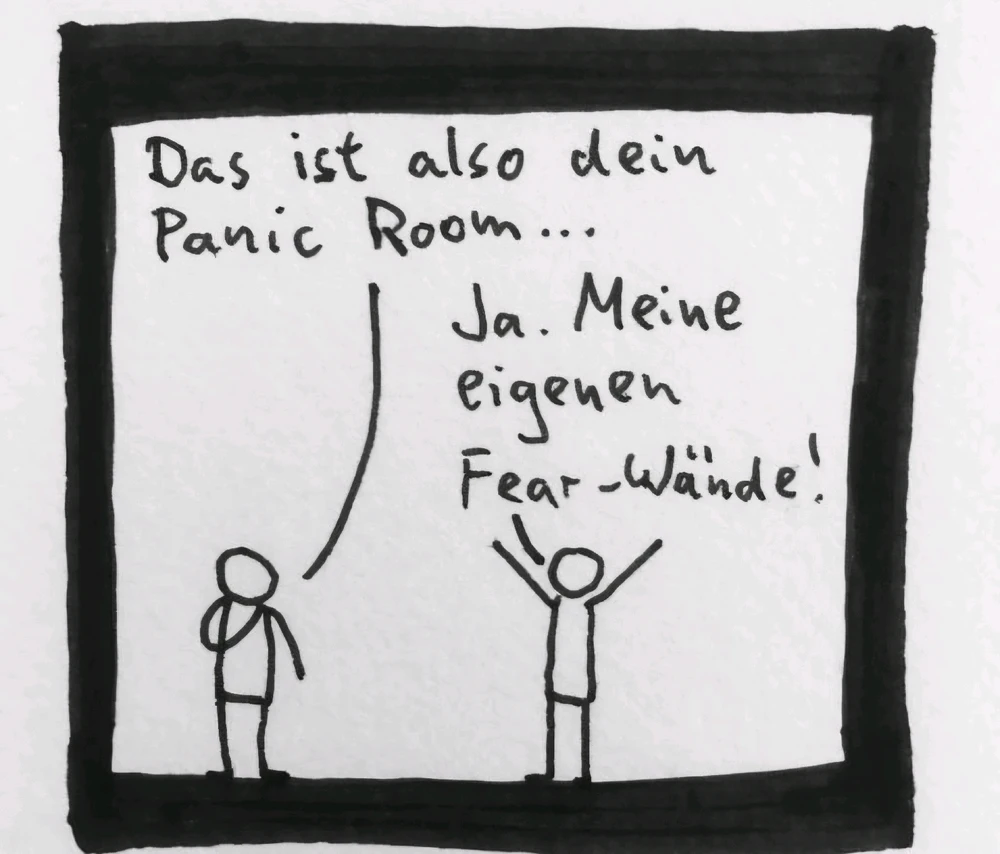 Das ist also dein
Panic Room...
Ja. Meine
eigenen
Fear-Wände!